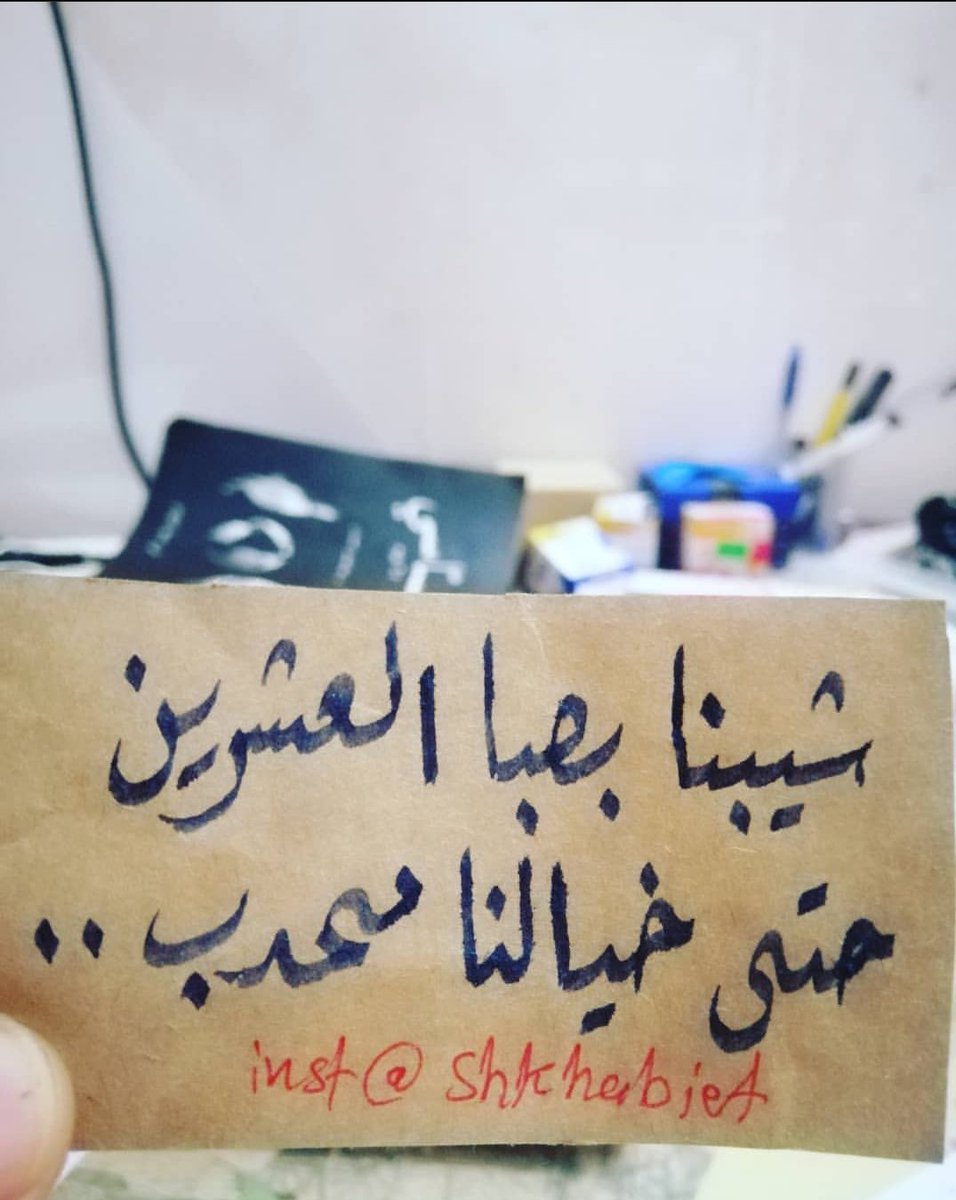 شيبنا بصبا العشرين
حتى خيالنا محدب ..
inst@ shkhabiet